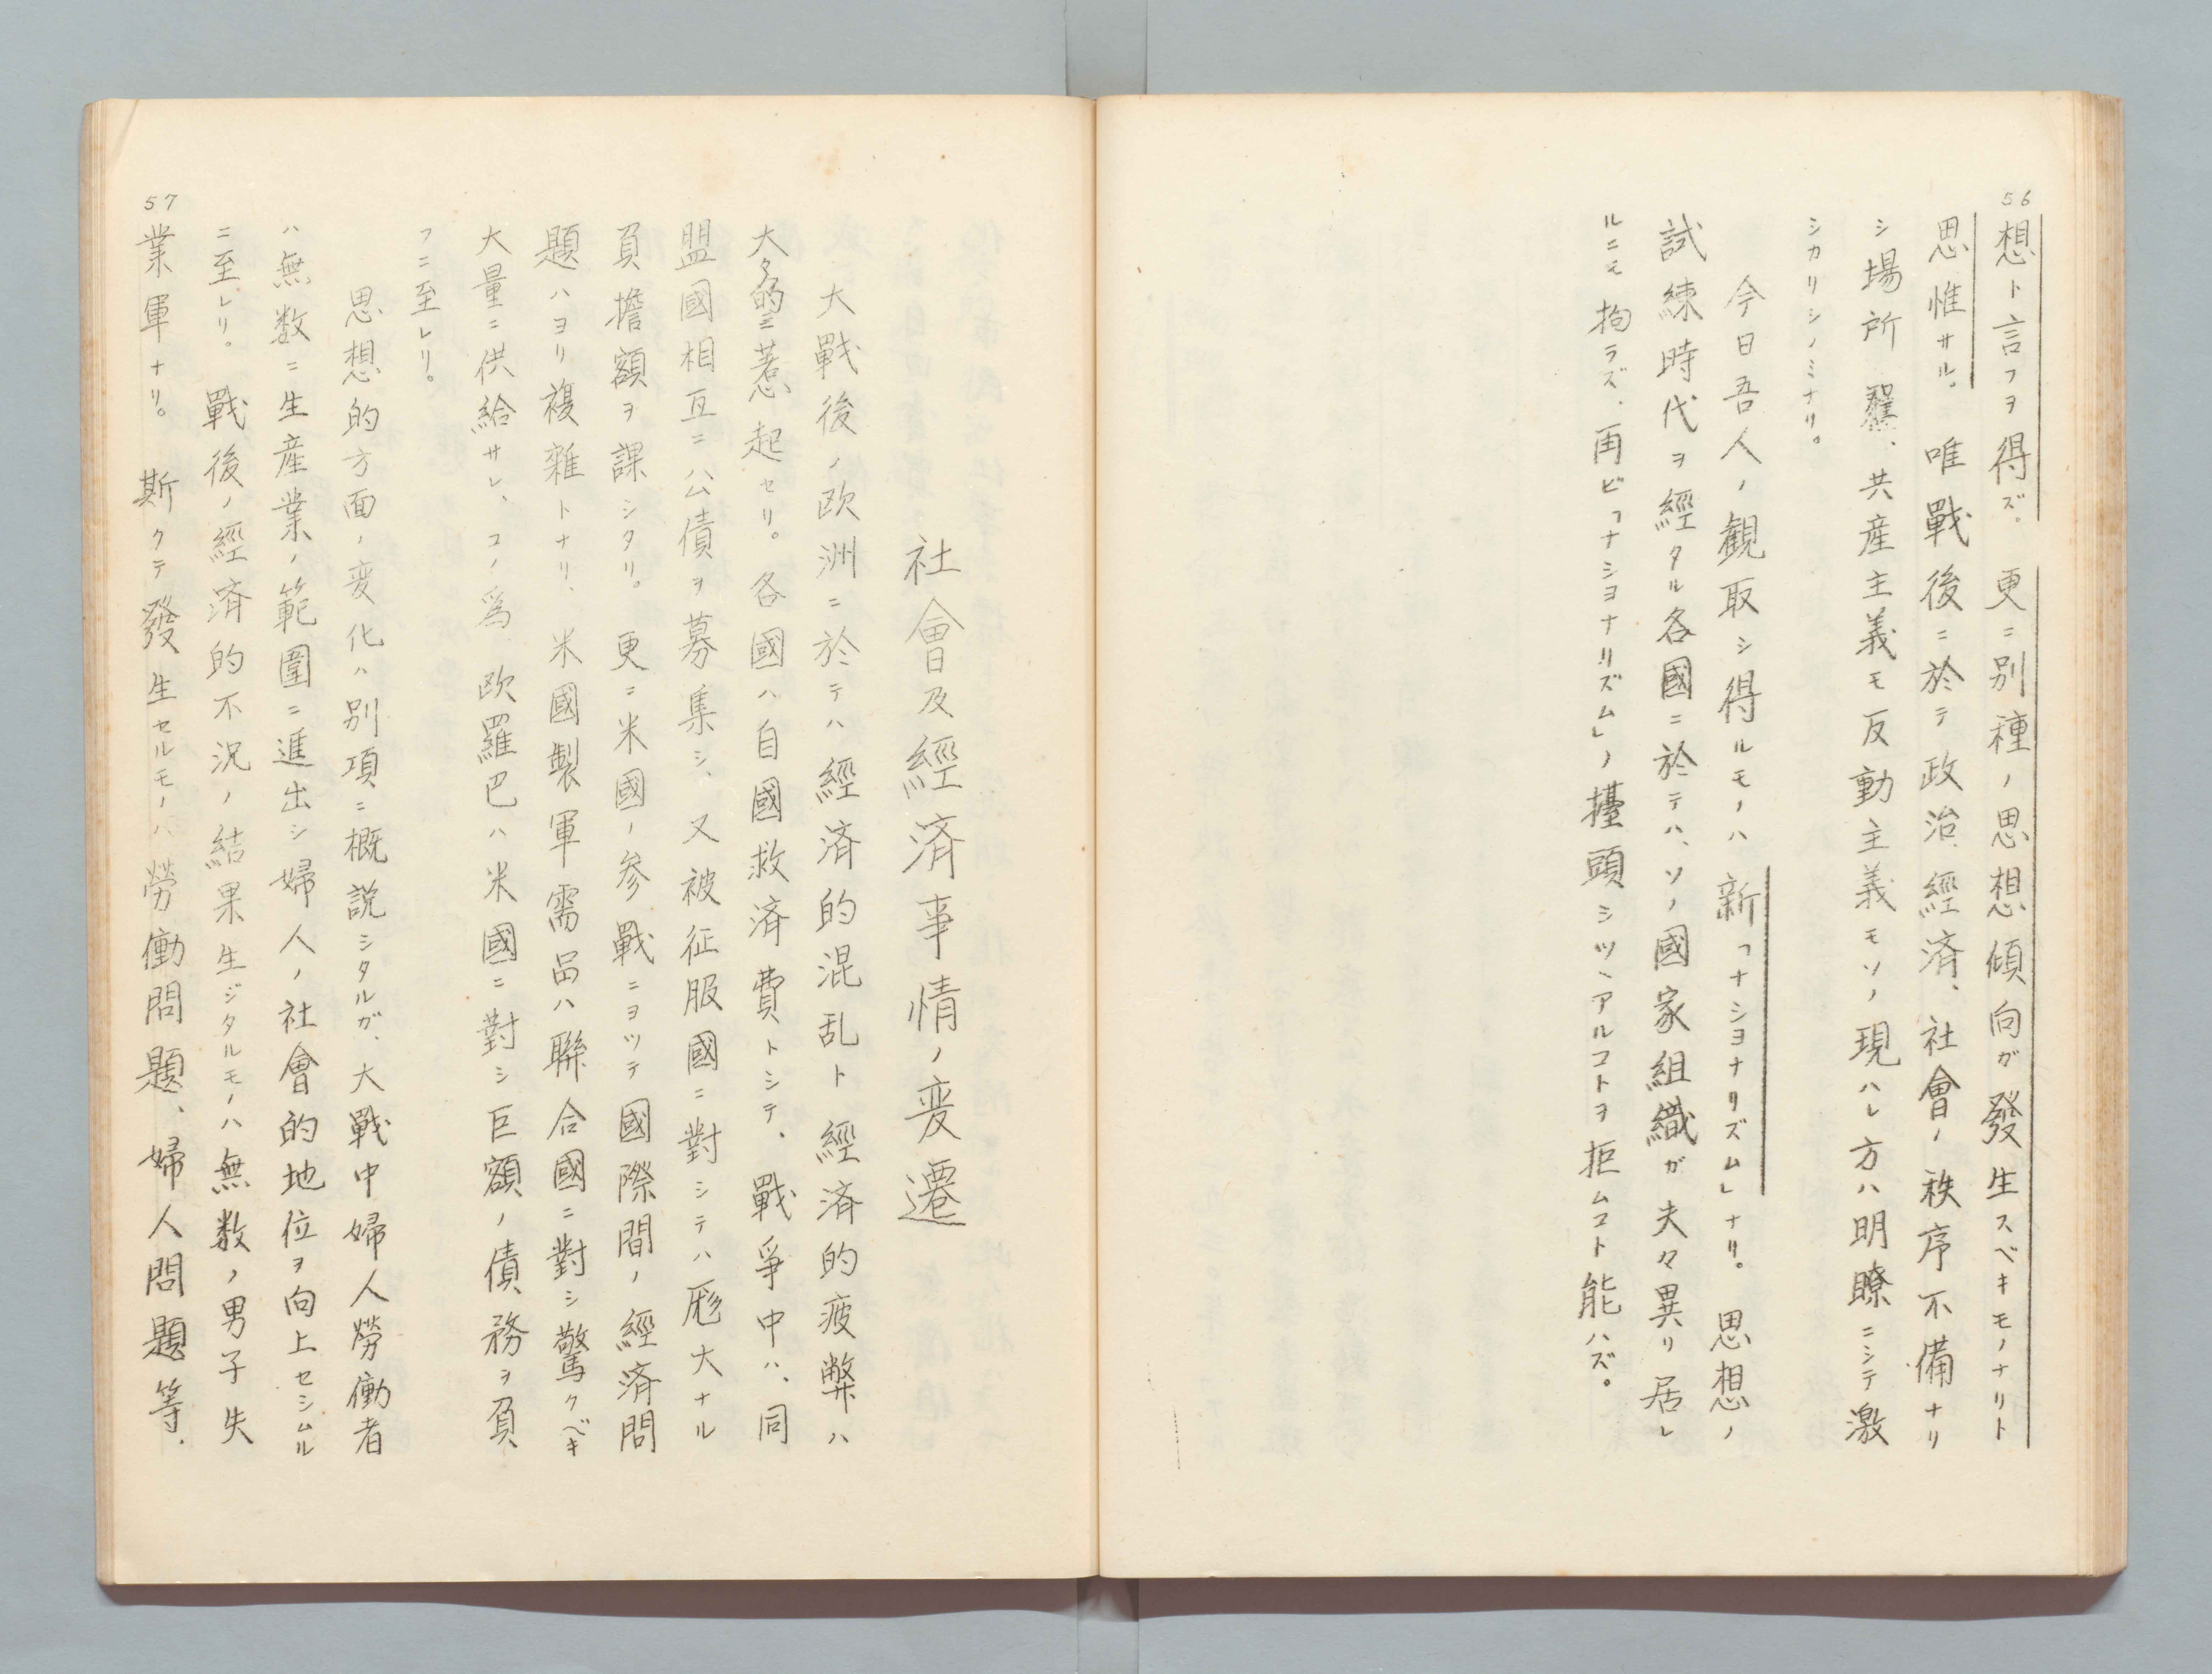 56
想ト言フヲ得ズ。更ニ別種ノ思想傾向ガ發生スベキモノナリト
思惟サル。唯戰後ニ於テ政治、經済、社會ノ秩序不備ナリ
シ場所程、共産主義モ反動主義モソノ現ハレ方ハ明瞭ニシテ激
シカリシノミナリ。
今日吾人ノ観取シ得ルモノハ新「ナシヨナリズム」ナリ。思想ノ
試練時代ヲ經タル各國ニ於テハ、ソノ國家組織ガ夫々異リ居レ
ルニモ拘ラズ、再ビ「ナシヨナリズム」ノ擡頭シツヽアルコトヲ拒ムコト能ハズ。
社會及經済事情ノ変遷
大戰後ノ欧洲ニ於テハ經済的混乱ト經済的疲弊ハ
大々的ニ惹起セリ。各國ハ自國救済費トシテ、戰爭中ハ、同
盟國相互ニ公債ヲ募集シ、又被征服國ニ對シテハ厖大ナル
負擔額ヲ課シタリ。更ニ米國ノ参戰ニヨツテ國際間ノ經済問
題ハヨリ複雜トナリ、米國製軍需品ハ聯合國ニ對シ驚クベキ
大量ニ供給サレ、コノ爲欧羅巴ハ米國ニ對シ巨額ノ債務ヲ負
フニ至レリ。
思想的方面ノ変化ハ別項ニ概説シタルガ、大戰中婦人勞働者
ハ無数ニ生産業ノ範圍ニ進出シ婦人ノ社會的地位ヲ向上セシムル
ニ至レリ。戰後ノ經済的不況ノ結果生ジタルモノハ無数ノ男子失
57
業軍ナリ。斯クテ發生セルモノハ勞働問題、婦人問題等、